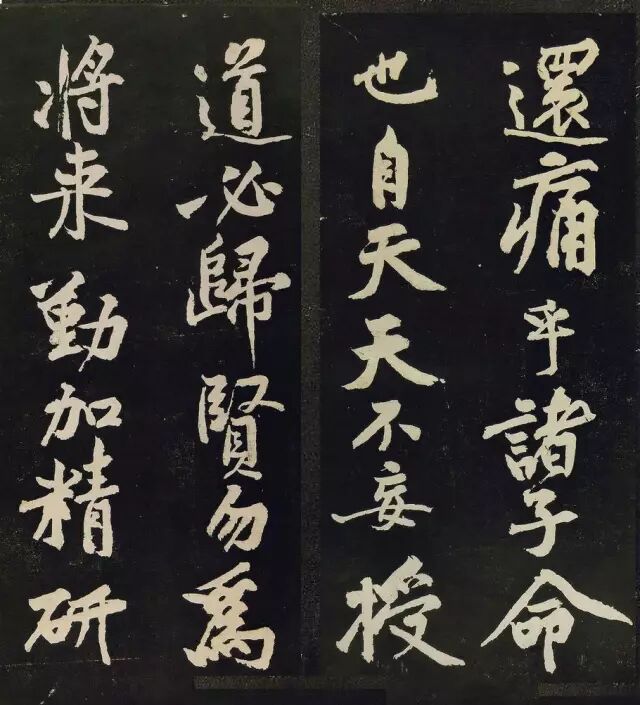 還痛乎諸子命
也自天天不妄授
道必歸賢勿爲
將来勤加精研